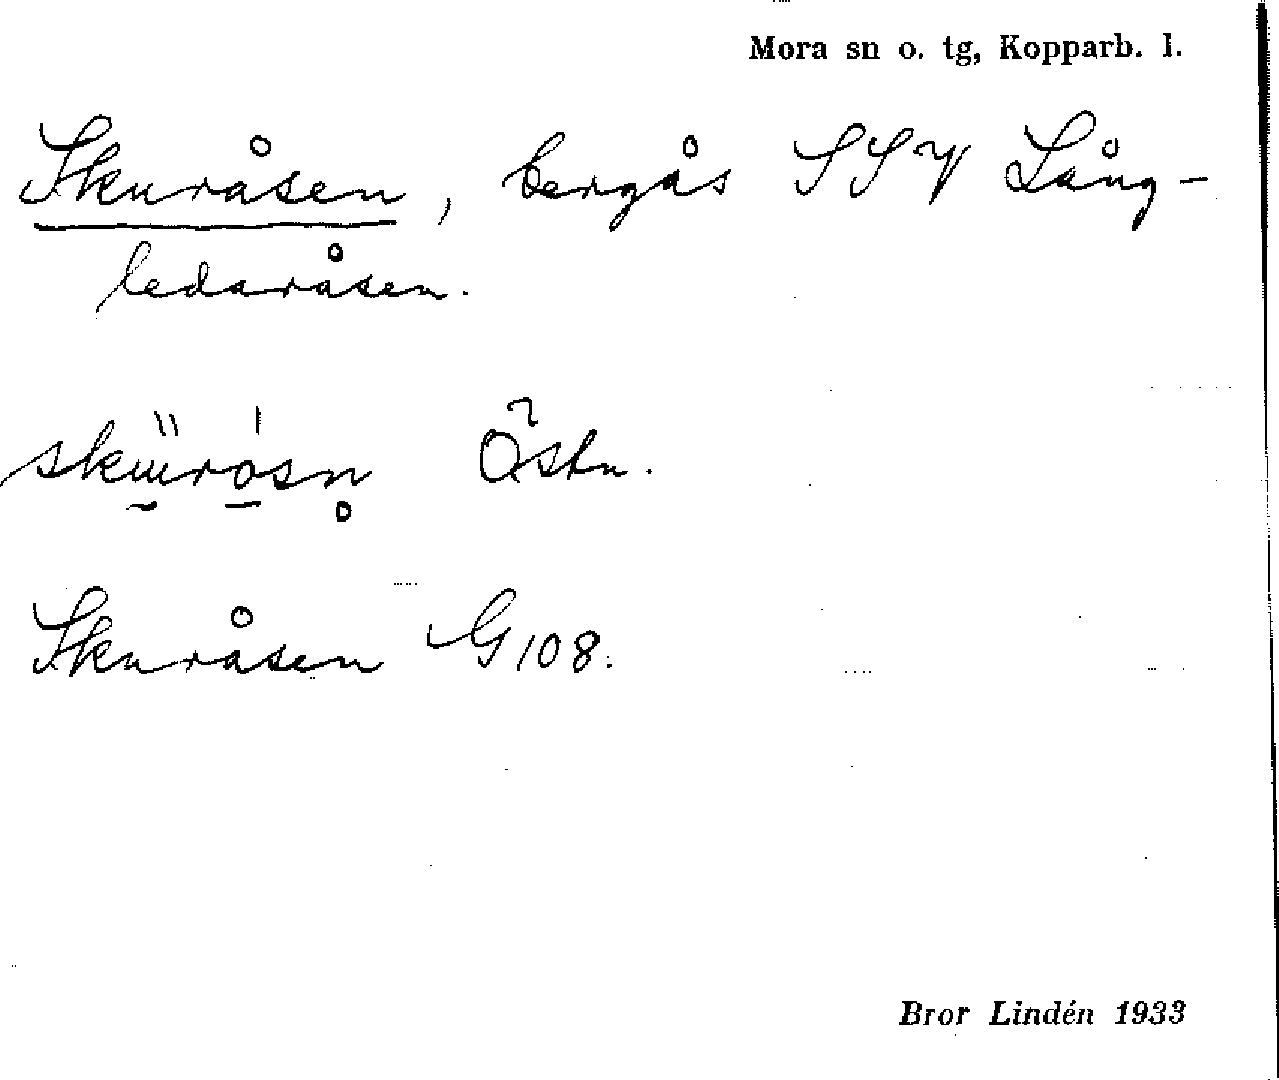 Mora sn o. tg, Kopparb. l.
Skuråsen, bergås SSV Lång-
ledaråsen.
Östn.
Skuråsen G 108.
Bror Lindén 1933